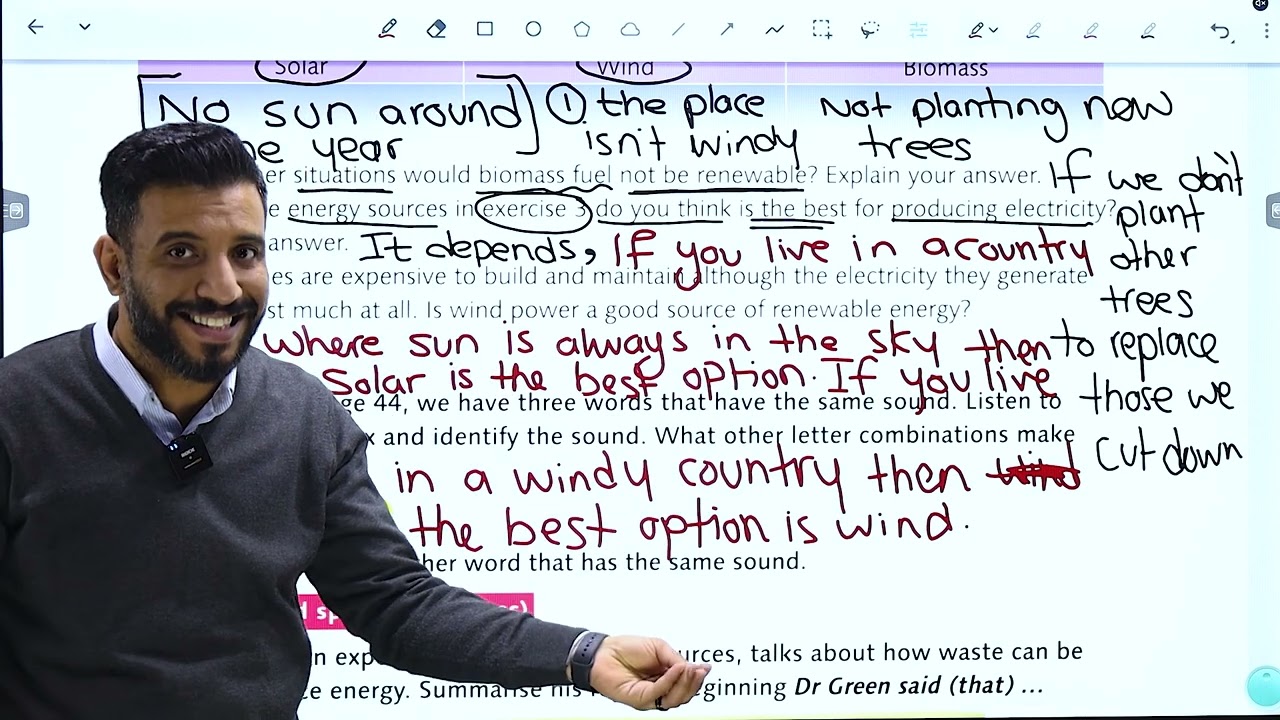 Solar Wind Biomass
No sun around ① the place Not planting new
year isn't windy trees
situations would biomass fuel not be renewable? Explain your answer. If we don't
energy sources in exercise 3 do you think is the best for producing electricity? plant
answer. It depends, If you live in a country other
are expensive to build and maintain although the electricity they generate
trees
much at all. Is wind power a good source of renewable energy?
where sun is always in the sky then to replace
Solar is the best option. If you live
44, we have three words that have the same sound. Listen to those we
and identify the sound. What other letter combinations make
in a windy country then cut down
the best option is wind.
word that has the same sound.
talks about how waste can be
energy. Summarise his beginning Dr Green said (that) ...